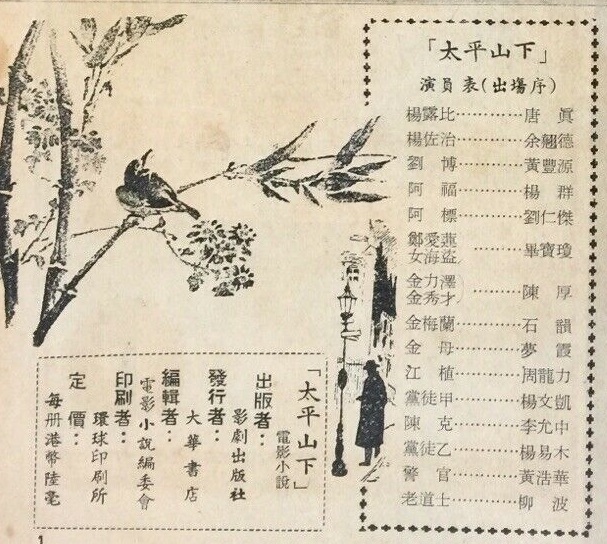 「太平山下」
演員表(出場序)
楊露比…………唐眞
楊佐治…………余翹德
劉博…………黃豐源
阿福…………楊群
阿標…………劉仁傑
鄭愛蓮
女海盜…………畢寶瓊
金力澤
金秀才…………陳厚
金梅蘭…………石韻
金母…………夢霞
江植…………周龍力
黨徒甲…………楊文凱
陳克…………李允中
黨徒乙…………楊易木
警官…………黃浩華
老道士…………柳波
「太平山下」
電影小說
出版者：
影劇出版社
發行者：
大華書店
編輯者：
電影小說編委會
印刷者：
環球印刷所
定價：
每册港幣陸毫
1